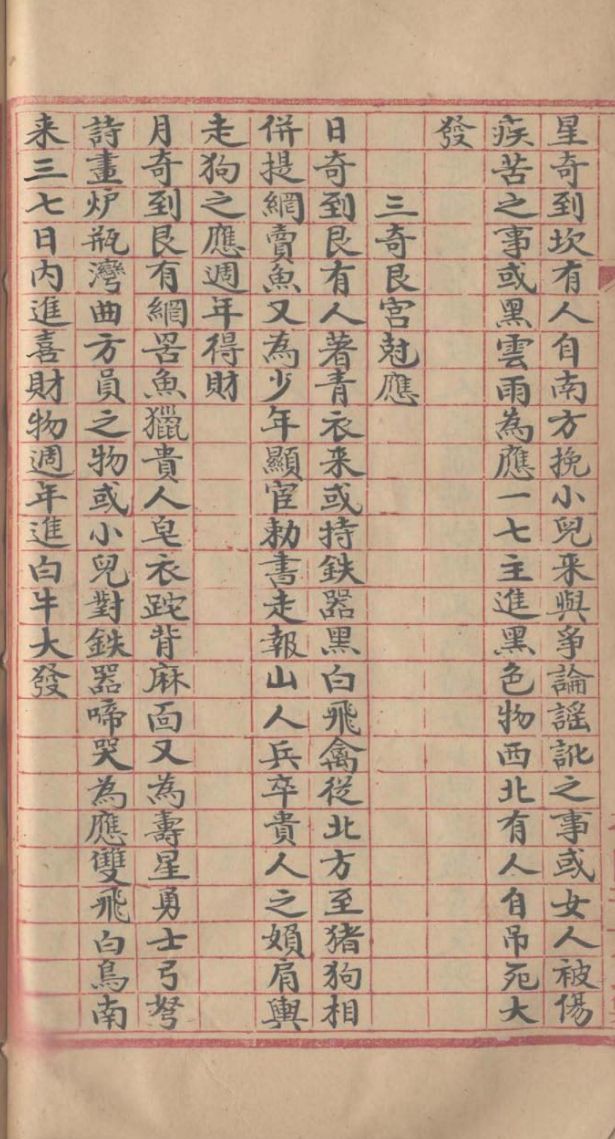 星奇到坎有人自南方挽小兒来與爭論謡訛之事或女人被傷
疾苦之事或黑雲雨為應一七主進黑色物西北有人自吊死大
發
三奇艮宮尅應
日奇到艮有人著青衣来或持鉄器黑白飛禽從北方至猪狗相
併提網賣魚又為少年顯宦勅書走報山人兵卒貴人之類肩輿
走狗之應週年得財
月奇到艮有網罟魚獵貴人皂衣跎背麻面又為壽星勇士弓弩
詩畫炉瓶灣曲方員之物或小兒對鉄器啼哭為應雙飛白鳥南
来三七日內進喜財物週年進白牛大發